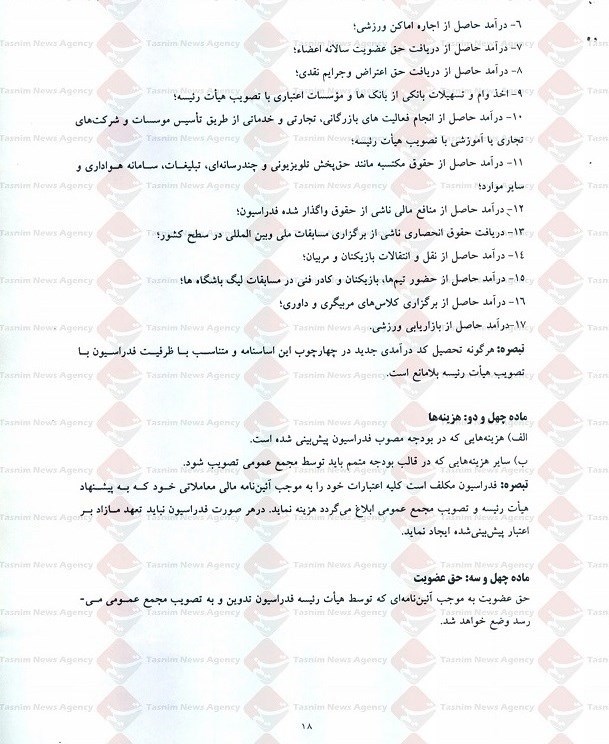 ۶- درآمد حاصل از اجاره اماکن ورزشی؛
۷- درآمد حاصل از دریافت حق عضویت سالانه اعضاء؛
۸- درآمد حاصل از دریافت حق اعتراض وجرایم نقدی؛
۹- اخذ وام و تسهیلات بانکی از بانک ها و مؤسسات اعتباری با تصویب هیأت رئیسه؛
۱۰- درآمد حاصل از انجام فعالیت های بازرگانی، تجارتی و خدماتی از طریق تأسیس موسسات و شرکت‌های
تجاری یا آموزشی با تصویب هیأت رئیسه؛
۱۱- درآمد حاصل از حقوق مکتسبه مانند حق‌پخش تلویزیونی و چندرسانه‌ای، تبلیغات، سامانه هواداری و
سایر موارد؛
۱۲- درآمد حاصل از منافع مالی ناشی از حقوق واگذار شده فدراسیون؛
۱۳- دریافت حقوق انحصاری ناشی از برگزاری مسابقات ملی وبین المللی در سطح کشور؛
۱۴- درآمد حاصل از نقل و انتقالات بازیکنان و مربیان؛
۱۵- درآمد حاصل از حضور تیم‌ها، بازیکنان و کادر فنی در مسابقات لیگ باشگاه ها؛
۱۶- درآمد حاصل از برگزاری کلاس‌های مربیگری و داوری؛
۱۷-درآمد حاصل از بازاریابی ورزشی.
تبصره: هرگونه تحصیل کد درآمدی جدید در چهارچوب این اساسنامه و متناسب با ظرفیت فدراسیون با
تصویب هیأت رئیسه بلامانع است.
ماده چهل و دو: هزینه‌ها
الف) هزینه‌هایی که در بودجه مصوب فدراسیون پیش‌بینی شده است.
ب) سایر هزینه‌هایی که در قالب بودجه متمم باید توسط مجمع عمومی تصویب شود.
تبصره: فدراسیون مکلف است کلیه اعتبارات خود را به موجب آئین‌نامه مالی معاملاتی خود که به پیشنهاد
هیأت رئیسه و تصویب مجمع عمومی ابلاغ می‌گردد هزینه نماید. درهر صورت فدراسیون نباید تعهد مازاد بر
اعتبار پیش‌بینی‌شده ایجاد نماید.
ماده چهل و سه: حق عضویت
حق عضویت به موجب آئین‌نامه‌ای که توسط هیأت رئیسه فدراسیون تدوین و به تصویب مجمع عمومی می-
رسد وضع خواهد شد.
۱۸
Tasnim News Agency